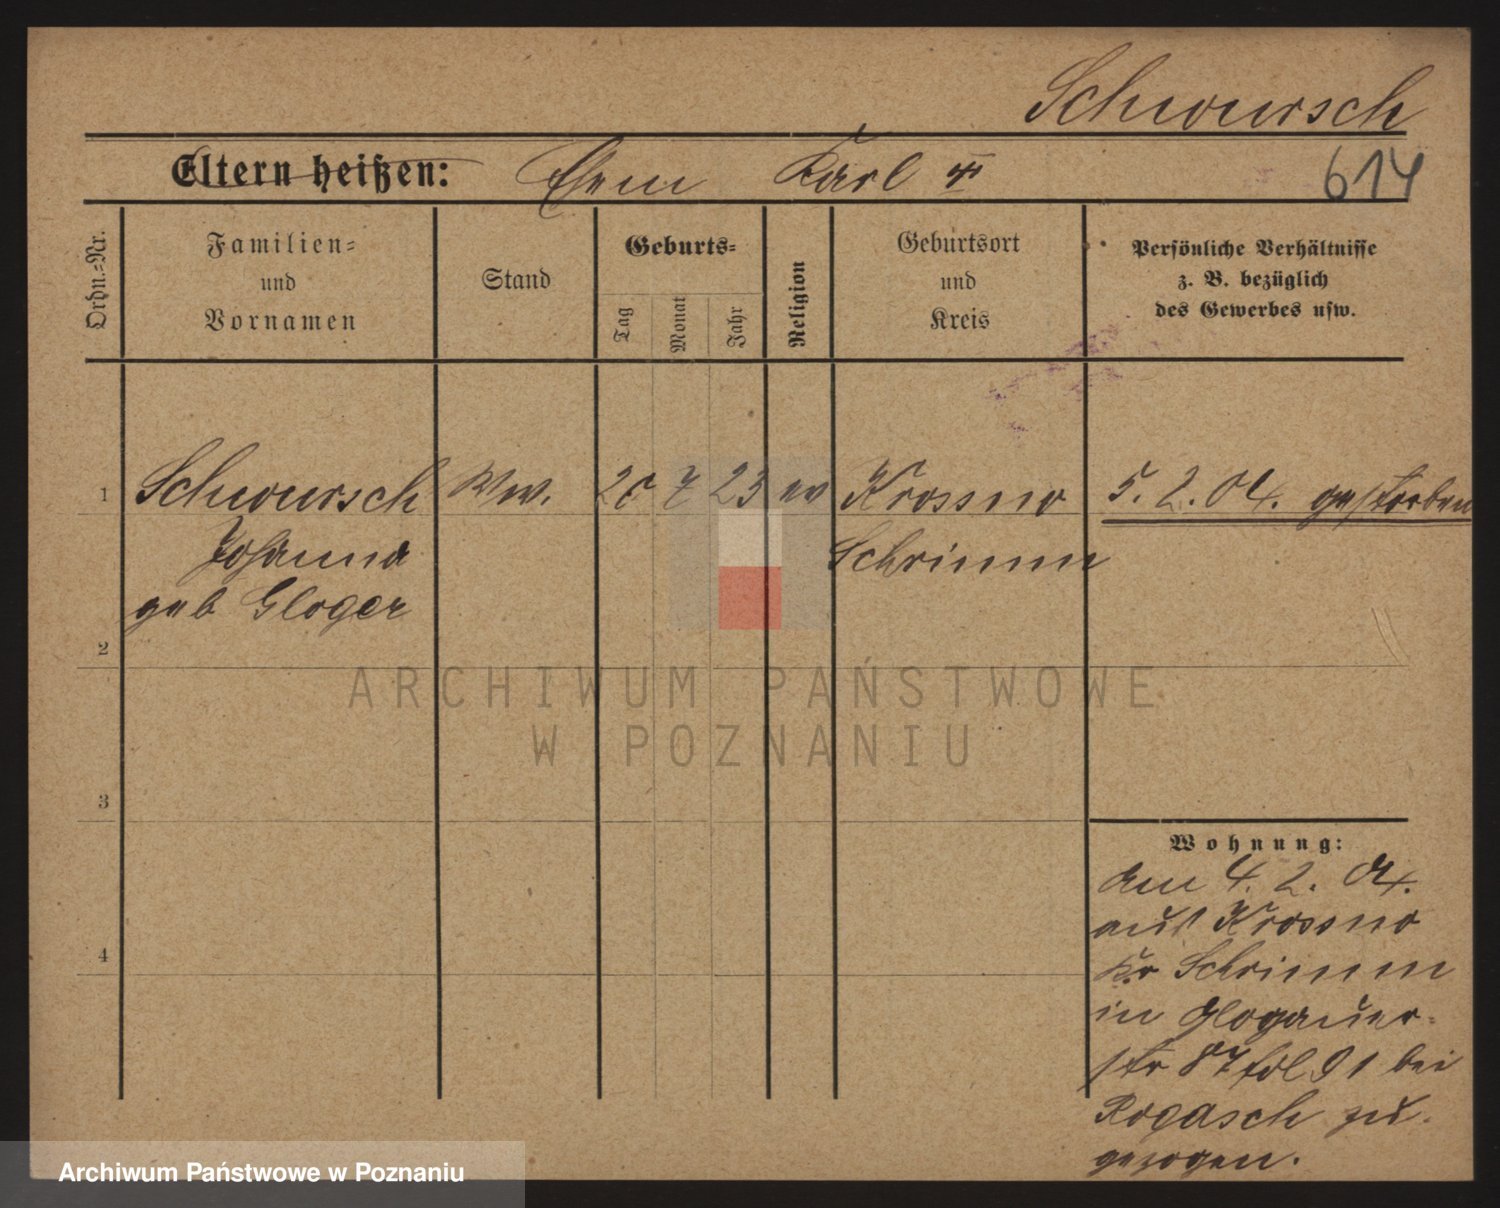 Schwursch
Eltern heißen: Ehem Karl
614
Ordn.=Nr.
Familien=
und
Vornamen
Stand
Geburts=
Tag
Monat
Jahr
Religion
Geburtsort
und
Kreis
Persönliche Verhältnisse
z. B. bezüglich
des Gewerbes usw.
1 Schwursch Ww. 26 7 23 ev Krossno 5. 2. 04. gestorben
Johanna Schrimm
geb Gloger
2
3
4
Wohnung:
am 4. 2. 04.
aus Krossno
Kr Schrimm
in Glogauer-
str 87 fol 91 bei
Rogasch zu-
gezogen.
ARCHIWUM PAŃSTWOWE
W POZNANIU
Archiwum Państwowe w Poznaniu